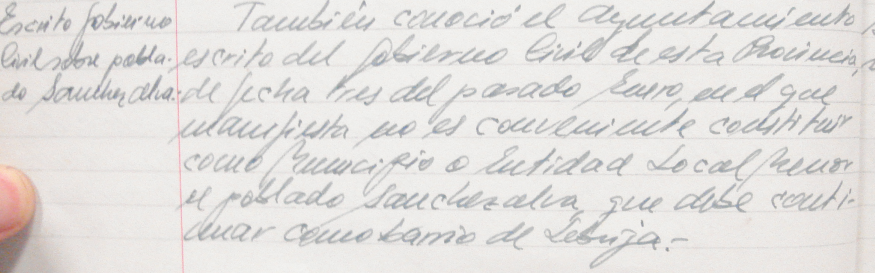 Escrito Gobierno
Civil sobre pobla-
do Sanchezalva.
También conoció el Ayuntamiento
escrito del Gobierno Civil de esta Provincia,
de fecha tres del pasado Enero, en el que
manifiesta no es conveniente constituir
como Municipio o Entidad Local Menor
el poblado Sanchezalva, que debe conti-
nuar como barrio de Lebrija.-